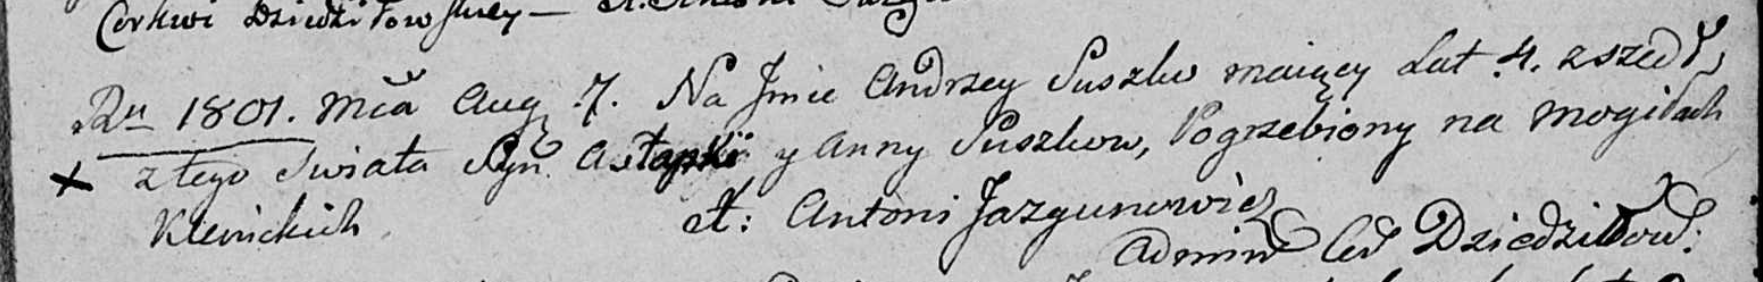 Cerkwi Dziedziłowskiey —
Ru 1801. Mca Aug 7. Na Jmie Andrzey Suszko maiący Lat 4. zszedł
x z tego Swiata Syn Astapki y Anny Suszkow, Pogrzebiony na Mogiłach
Klenickich
X: Antoni Jazgunowicz
Admin Cer Dziedziłow: